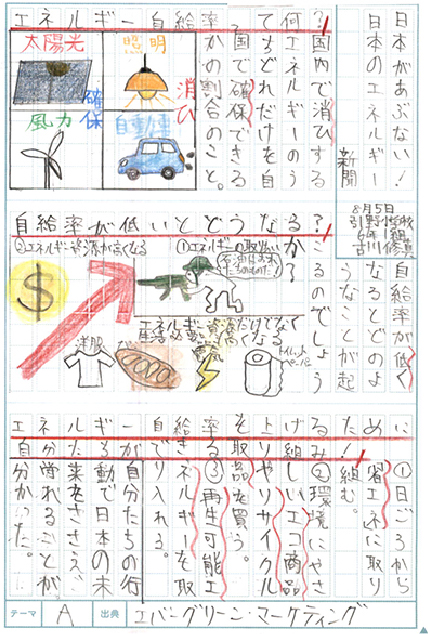 日本があぶない!
日本のエネルギー
新聞
8月5日
引野小学校
6年1組
古川修真
エネルギー自給率って何?
国内で消ひする
エネルギーのう
ちどれだけを自
国で確保できる
かの割合のこと。
太陽光
照明
風力
自動車
確保
消ひ
自給率が低いとどうなる?
自給率が低く
なるとどのよ
うなことが起
こるのでしょう
か?
①エネルギーの取り合い
②エネルギー資源が高くなる
エネルギー資源だけでなく
生活必需品も高くなる
洋服
パン
電気
トイレットペーパー
エネルギー自給率を上げるために!
①日ごろから
省エネに取り
組む。
②環境にやさ
しいエコ商品
やリサイクル
品を買う。
③再生可能エ
ネルギーを取
り入れる。
自分たちの行
動で日本の未
来をささえ
守れることが
分かった。
テーマ A 出典 エバーグリーン・マーケティング